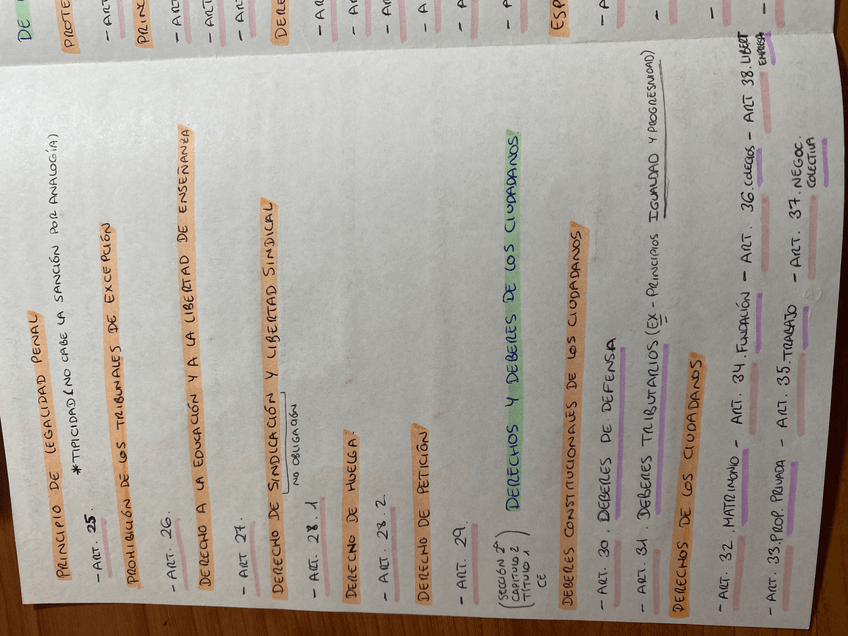 PRINCIPIO DE LEGALIDAD PENAL
- ART. 25. * TIPICIDAD (NO CABE LA SANCIÓN POR ANALOGÍA)
PROHIBICIÓN DE LOS TRIBUNALES DE EXCEPCIÓN
- ART. 26.
DERECHO A LA EDUCACIÓN Y A LA LIBERTAD DE ENSEÑANZA
- ART 27.
DERECHO DE SINDICACIÓN Y LIBERTAD SINDICAL
NO OBLIGACIÓN
- ART. 28. 1
DERECHO DE HUELGA.
- ART. 28. 2.
DERECHO DE PETICIÓN
- ART. 29.
(SECCIÓN 2ª CAPITULO 2 TÍTULO 1 CE) DERECHOS Y DEBERES DE LOS CIUDADANOS
DEBERES CONSTITUCIONALES DE LOS CIUDADANOS
- ART. 30. DEBERES DE DEFENSA
- ART. 31. DEBERES TRIBUTARIOS (EX - PRINCIPIOS IGUALDAD Y PROGRESIVIDAD)
DERECHOS DE LOS CIUDADANOS
- ART. 32. MATRIMONIO - ART. 34. FUNDACIÓN - ART. 36. COLEGIOS - ART 38. LIBERT EMPRESA
- ART. 33. PROP. PRIVADA - ART. 35. TRABAJO - ART. 37. NEGOC. COLECTIVA